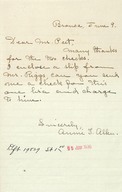 Bronson June 9.
Dear Mr. Peet,
Many thanks
for the two checks.
I enclose a slip from
Mr. Pigg. Can you send
me a check from this
one also and charge to
him.
Sincerely,
Annie T. Allen.